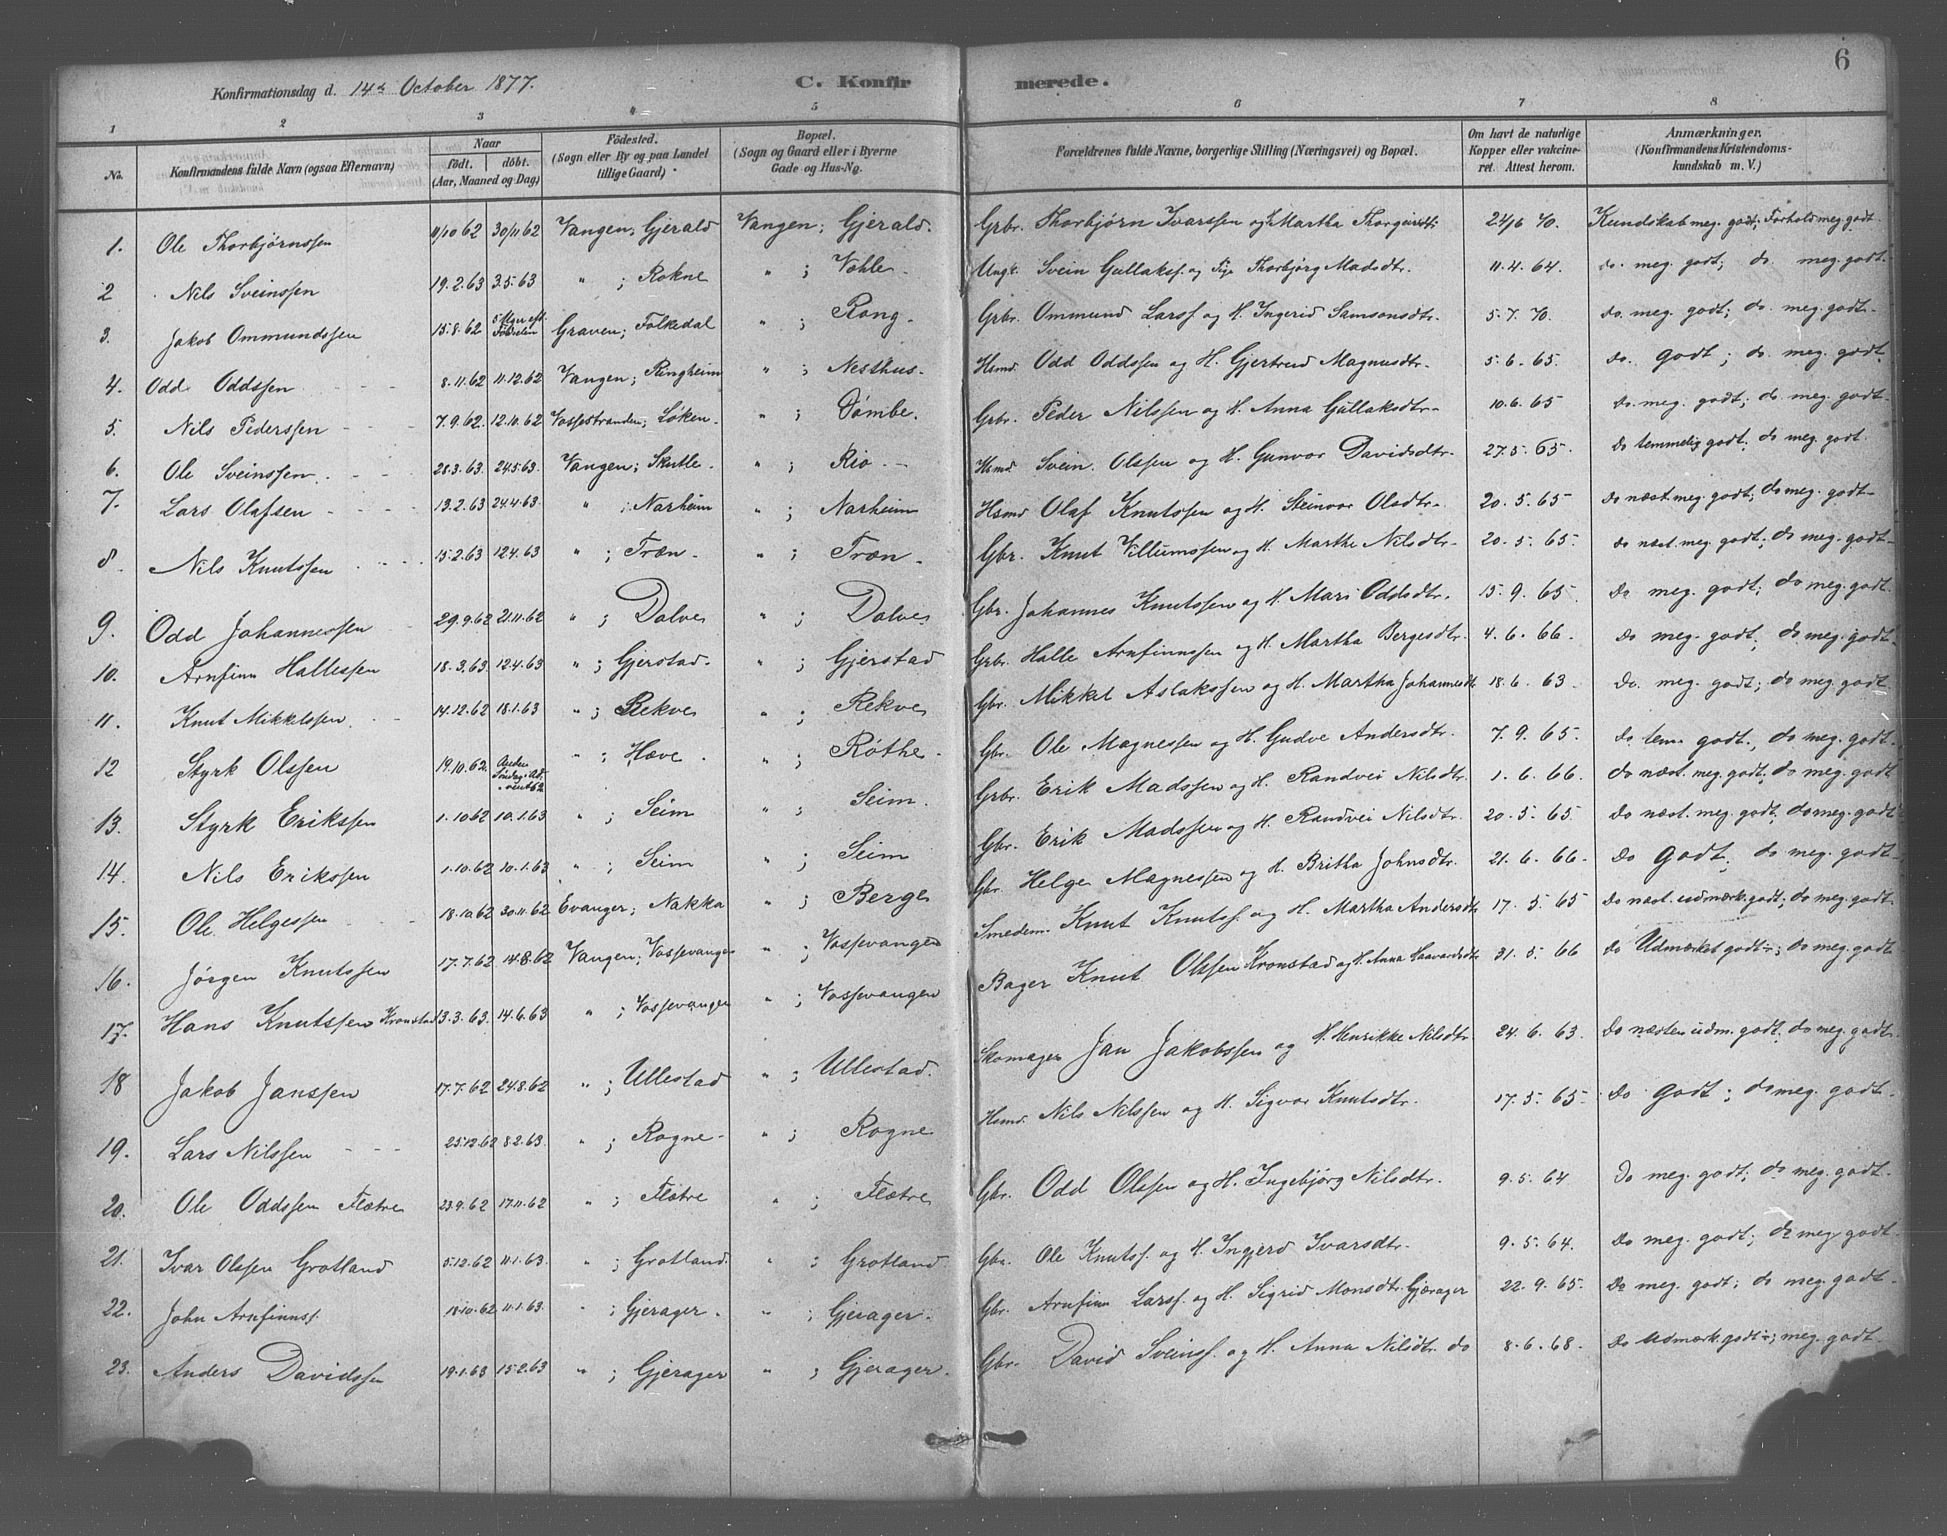 6
Konfirmationsdag d. 14de October 1877. C. Konfirmerede.
1 2 3 4 5 6 7 8
No. Konfirmandens fulde Navn (ogsaa Efternavn) Naar født. døbt. (Aar, Maaned og Dag) Fødested. (Sogn eller By og paa Landet tillige Gaard) Bopæl. (Sogn og Gaard eller i Byerne Gade og Hus-No. Forældrenes fulde Navne, borgerlige Stilling (Næringsvei) og Bopæl. Om havt de naturlige Kopper eller vakcineret. Attest herom. Anmærkninger. (Konfirmandens Kristendomskundskab m. V.)
1. Ole Thorbjørnssen 11/10 62 30/11 62 Vangen; Gjerald Vangen; Gjerald. Grbr. Thorbjørn Ivarssen og H. Martha Thorgeirsdtr 24/6 70. Kundskab meg. godt; Forhold meg. godt.
2 Nils Sveinssen 19.2.63 3.5.63 " ; Rokne " ; Vohle. Ungk. Svein Gullakss. og Pige Thorbjørg Madsdtr. 11.4.64. do. meg. godt; do. meg. godt.
3. Jakob Ommundssen 15.8.62 Graven; Folkedal " ; Rong. Grbr. Ommund Larss. og H. Ingerid Samsonsdtr. 5.7.70. do. meg. godt; do. meg. godt.
4. Odd Oddssen 8.11.62 11.12.62 Vangen; Ringheim " ; Nesthus. Hsmd. Odd Oddssen og H. Gjertrud Magnusdtr. 5.6.65. do. godt; do. meg. godt.
5. Nils Pederssen 7.9.62. 12.10.62 Vossestranden; Løken. " ; Dømbe. Grbr. Peder Nilssen og H. Anna Gullaksdtr. 10.6.65 do. meg. godt; do meg. godt.
6. Ole Sveinssen 28.3.63. 24.5.63. Vangen; Skutle. " ; Rio. Hsmd Svein Olssen og H. Gunvor Davidsdtr. 27.5.65. Do temmelig godt; do meg. godt.
7. Lars Olafsen 13.2.63 24.4.63 " ; Narheim " ; Narheim Hsmd Olaf Knutssen og H. Steinvor Olsdtr. 20.5.65 Do næst. meg. godt; do meg. godt
8. Nils Knutssen 15.2.63 12.4.63 " ; Træn. " ; Træn. Gbr. Knut Villumssen og H. Marthe Nilsdtr. 20.5.65. do næst. meg. godt; do meg. godt.
9. Odd Johannessen 29.9.62 21.11.62 " ; Dolve " ; Dolve Gbr. Johannes Knutssen og H. Mari Oddsdtr. 15.9.65. Do meg. godt; do meg. godt.
10. Arnfinn Hallessen 18.3.63 12.4.63 " ; Gjerstad. " ; Gjerstad Grbr. Halle Arnfinnssen og H. Martha Bergesdtr. 4.6.66. Do meg. godt; do meg. godt.
11. Knut Mikkelssen 14.12.62 18.1.63 " ; Rekve " ; Rekve Gbr. Mikkel Aslakssen og H. Martha Johannesdtr 18.6.63. Do. meg. godt; do meg. godt
12 Styrk Olssen 19.10.62. Anden Søndag i Advent 62 " ; Hæve. " ; Røthe. Gbr. Ole Magnessen og H. Gudve Andersdtr. 7.9.65. Do tem. godt., do meg. godt.
13. Styrk Erikssen 1.10 62 10.1.63 " ; Seim " ; Seim. Grbr. Erik Madssen og H. Randvei Nilsdtr. 1.6.66. do næst. meg. godt; do meg. godt
14. Nils Erikssen 1.10.62 10.1.63 " ; Seim " ; Seim Gbr. Erik Madssen og H. Randvei Nilsdtr. 20.5.65. Do næst. meg. godt; do meg. godt
15. Ole Helgessen 18.10.62 30.11.62 Evanger; Nakka " ; Berge Gbr. Helge Magnessen og H. Britha Johnsdtr. 21.6.66. Do godt; do meg. godt.
16. Jørgen Knutssen 17.7.62 14.8.62 Vangen; Vossevangen " ; Vossevangen Smedem. Knut Knutss. og H. Martha Andersdtr 17.5.65 Do næst. udmærk. godt; do meg. godt.
17. Hans Knutssen Kronstad 13.3.63. 14.6.63 " ; Vossevangen " ; Vossevangen Bager Knut Olssen Kronstad og H. Anna Haavardsdtr 31.5.66 Do Udmærket godt; do meg. godt
18 Jakob Janssen 17.7.62 24.8.62 " ; Ullestad " ; Ullestad. Skomager Jan Jakobssen og H. Henrikke Nilsdtr. 24.6.63. Do næsten udm. godt; do meg. godt.
19. Lars Nilssen 25.12.62 8.2.63. " ; Rogne. " ; Rogne Hsmd. Nils Nilssen og H. Sigvor Knutsdtr. 17.5.65. Do godt; do meg. godt.
20. Ole Oddssen Flætre 23.9.62 17.11.62 " ; Flætre " ; Flætre Gbr. Odd Olssen og H. Ingebjørg Nilsdtr. 9.5.64 Do meg. godt; do meg. godt.
21. Ivar Olssen Grotland 5.12.62 11.1.63. " ; Grotland. " ; Grotland Gbr. Ole Knutss. og H. Ingjerd Ivarsdtr. 9.5.64. Do meg. godt; do meg. godt.
22. John Arnfinnss. 18.10.62 11.1.63. " ; Gjerager. " ; Gjerager. Gbr. Arnfinn Larss. og H. Sigrid Monsdtr. Gjærager 22.9.65. Do meg. godt; do meg. godt.
23. Anders Davidssen 19.1.63 15.2.63 " ; Gjerager " ; Gjerager. Gbr. David Sveinss. og H. Anna Nilsdtr. do 8.6.68. Do Udmærk. godt; meg. godt.